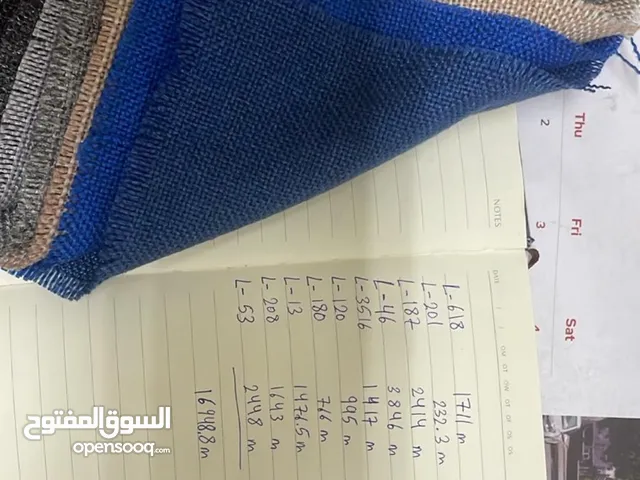 Thu
2
Fri
3
Sat
NOTES
DATE
L-618 1711 m
L-201 232.3 m
L-187 2414 m
L-46 3846 m
L-3516 1417 m
L-120 995 m
L-180 766 m
L-13 1476.5 m
L-208 1643 m
L-53 2448 m
16948.8 m
السوق المفتوح
opensooq.com